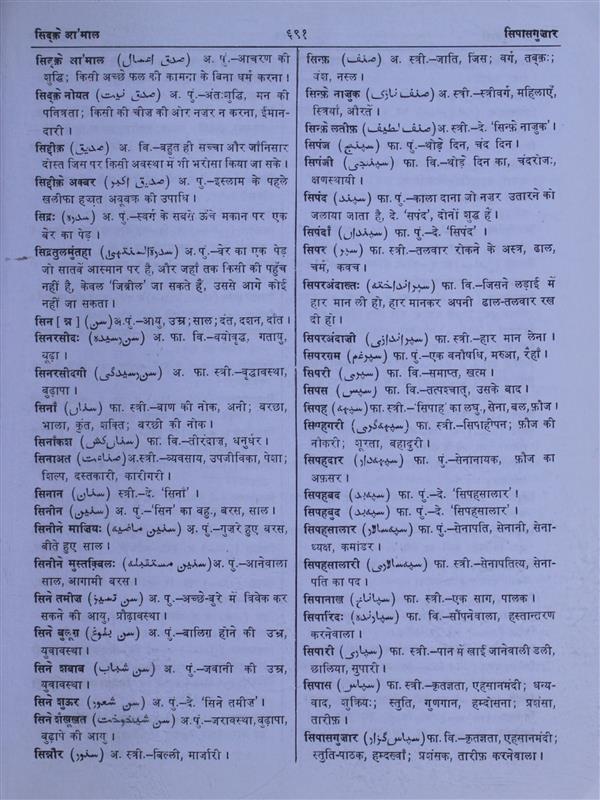 सिद्क़े आ'माल
६९१
सिपासगुज़ार
सिद्क़े आ'माल (صدق اعمال) अ. पुं.–आचरण की
शुद्धि; किसी अच्छे फल की कामना के बिना धर्म करना।
सिद्क़े नीयत (صدق نیت) अ. पुं.–अंतःशुद्धि, मन की
पवित्रता; किसी की चीज़ की ओर नज़र न करना, ईमान-
दारी।
सिद्दीक़ (صدیق) अ. वि.–बहुत ही सच्चा और जाँनिसार
दोस्त जिस पर किसी अवस्था में भी भरोसा किया जा सके।
सिद्दीक़े अक्बर (صدیق اکبر) अ. पुं.–इस्लाम के पहले
ख़लीफ़ा हज़्रत अबूबक्र की उपाधि।
सिद्रः (سدرہ) अ. पुं.–स्वर्ग के सबसे ऊँचे मकान पर एक
बेर का पेड़।
सिद्रतुलमुंतहा (سدرةالمنتهیٰ) अ. पुं.–बेर का एक पेड़
जो सातवें आस्मान पर है, और जहाँ तक किसी की पहुँच
नहीं है, केवल 'जिब्रील' जा सकते हैं, उससे आगे कोई
नहीं जा सकता।
सिन [न्न] (سن) अ.पुं.–आयु, उम्र; साल; दंत, दशन, दाँत।
सिनरसीदः (سن رسیدہ) अ. फा. वि.–वयोवृद्ध, गतायु,
बूढ़ा।
सिनरसीदगी (سن رسیدگی) अ. फा. स्त्री.–वृद्धावस्था,
बुढ़ापा।
सिनाँ (سناں) फा. स्त्री.–बाण की नोक, अनी; बरछा,
भाला, कुंत, शक्ति; बरछी की नोक।
सिनाँकश (سناں کش) फा. वि.–तीरंदाज़, धनुर्धर।
सिनाअत (صناعت) अ.स्त्री.–व्यवसाय, उपजीविका, पेशा;
शिल्प, दस्तकारी, कारीगरी।
सिनान (سنان) स्त्री.–दे. 'सिनाँ'।
सिनीन (سنین) अ. पुं.–'सिन' का बहु., बरस, साल।
सिनीने माज़ियः (سنین ماضیہ) अ. पुं.–गुज़रे हुए बरस,
बीते हुए साल।
सिनीने मुस्तक़्बिलः (سنین مستقبلہ) अ. पुं.–आनेवाला
साल, आगामी बरस।
सिने तमीज़ (سن تمیز) अ. पुं.–अच्छे-बुरे में विवेक कर
सकने की आयु, प्रौढ़ावस्था।
सिने बुलूग़ (سن بلوغ) अ. पुं.–बालिग़ होने की उम्र,
युवावस्था।
सिने शबाब (سن شباب) अ. पुं.–जवानी की उम्र,
युवावस्था।
सिने शुऊर (سن شعور) अ. पुं.–दे. 'सिने तमीज़'।
सिने शैख़ूख़त (سن شیخوخت) अ. पुं.–जरावस्था, बुढ़ापा,
बुढ़ापे की आयु।
सिन्नौर (سنور) अ. स्त्री.–बिल्ली, मार्जारी।
सिन्फ़ (صنف) अ. स्त्री.–जाति, जिंस; वर्ग, तब्क़ः;
वंश, नस्ल।
सिन्फ़े नाज़ुक (صنف نازک) अ. स्त्री.–स्त्रीवर्ग, महिलाएँ,
स्त्रियाँ, औरतें।
सिन्फ़े लतीफ़ (صنف لطیف) अ. स्त्री.–दे. 'सिन्फ़े नाज़ुक'।
सिपंज (سپنج) फा. पुं.–थोड़े दिन, चंद दिन।
सिपंजी (سپنجی) फा. वि.–थोड़े दिन का, चंदरोज़ः,
क्षणस्थायी।
सिपंद (سپند) फा. पुं.–काला दाना जो नज़र उतारने को
जलाया जाता है, दे. 'सपंद', दोनों शुद्ध हैं।
सिपंदाँ (سپنداں) फा. पुं.–दे. 'सिपंद'।
सिपर (سپر) फा. स्त्री.–तलवार रोकने के अस्त्र, ढाल,
चर्म, कवच।
सिपरअंदाख़्तः (سپر انداختہ) फा. वि.–जिसने लड़ाई में
हार मान ली हो, हार मानकर अपनी ढाल-तलवार रख
दी हो।
सिपरअंदाज़ी (سپر اندازی) फा. स्त्री.–हार मान लेना।
सिपरग़म (سپرغم) फा. पुं.–एक वनौषधि, मरुआ, रैहाँ।
सिपरी (سپری) फा. वि.–समाप्त, ख़त्म।
सिपस (سپس) फा. वि.–तत्पश्चात्, उसके बाद।
सिपह (سپہ) फा.स्त्री.–'सिपाह' का लघु., सेना, बल, फ़ौज।
सिपहगरी (سپہ گری) फा. स्त्री.–सिपाहीपन; फ़ौज की
नौकरी; शूरता, बहादुरी।
सिपहदार (سپہدار) फा. पुं.–सेनानायक, फ़ौज का
अफ़्सर।
सिपहबद (سپہبد) फा. पुं.–दे. 'सिपहसालार'।
सिपहबुद (سپہبد) फा. पुं.–दे. 'सिपहसालार'।
सिपहसालार (سپہ سالار) फा. पुं.–सेनापति, सेनानी, सेना-
ध्यक्ष, कमांडर।
सिपहसालारी (سپہ سالاری) फा. स्त्री.–सेनापतित्व, सेना-
पति का पद।
सिपानाख़ (سپاناخ) फा. स्त्री.–एक साग, पालक।
सिपारिंदः (سپارندہ) फा. वि.–सौंपनेवाला, हस्तान्तरण
करनेवाला।
सिपारी (سپاری) फा. स्त्री.–पान में खाई जानेवाली डली,
छालिया, सुपारी।
सिपास (سپاس) फा. स्त्री.–कृतज्ञता, एहसानमंदी; धन्य-
वाद, शुक्रियः; स्तुति, गुणगान, हम्दोसना; प्रशंसा,
तारीफ़।
सिपासगुज़ार (سپاس گزار) फा. वि.–कृतज्ञता, एहसानमंदी;
स्तुति-पाठक, हम्दख्वाँ; प्रशंसक, तारीफ़ करनेवाला।